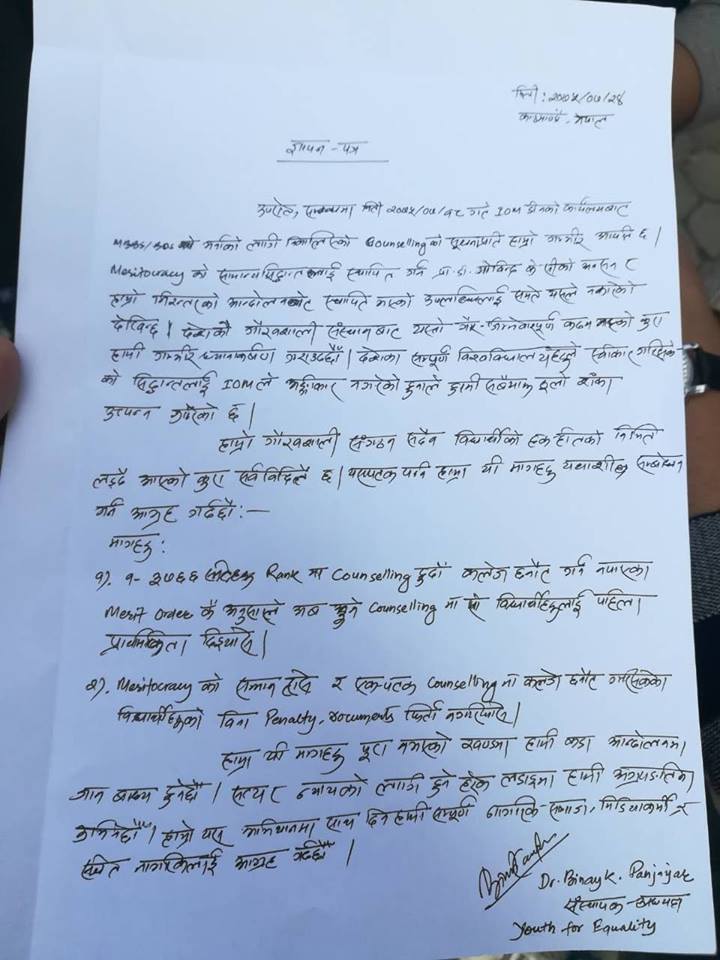 मिती : २०७५/०७/२४
काठमाण्डौ - नेपाल
ज्ञापन - पत्र
उपरोक्त सम्बन्धमा मिती २०७५/०७/१८ गते IOM डीनको कार्यालयबाट
MBBS/BDS को भर्नाको लागी निकालिएको Counselling को सूचनाप्रति हाम्रो गम्भीर आपत्ति छ |
Meritocracy को सामान्य सिद्धान्तलाई स्थापित गर्न प्रा. डा. गोविन्द के.सीको अनसन र
हाम्रो निरन्तरको आन्दोलनबाट स्थापित भएको उपलब्धिलाई समेत यसले नकारेको
देखिन्छ | देशकै गौरवशाली संस्थान बाट यस्तो गैर-जिम्मेवारपूर्ण कदम चालेको कुरा
हामी गम्भीर ध्यानाकर्षण गराउदछौँ | देशका सम्पूर्ण विश्वविद्यालयहरुले स्वीकार गरिसकेको
को सिद्धान्तलाई IOM ले अङ्गीकार नगरेको हुनाले हामी सबैमाझ ठूलो शंका
उत्पन्न गरेको छ |
हाम्रो गौरवशाली संगठन सदैव विद्यार्थीको हक हीतको निम्ति
लड्दै आएको कुरा सर्वविदितै छ | यसपटक पनि हाम्रा यी मागहरु यथाशीघ्र सम्बोधन
गर्न आग्रह गर्दछौँ :—
मागहरु :
१). १ - ३७६६ Rank मा Counselling हुदाँ कलेज छनौट गर्न नपाएका
Merit Order कै अनुसारले अब हुने Counselling मा ती विद्यार्थीहरुलाई पहिला
प्राथमिकता दिइयोस् |
२). Meritocracy को सम्मान होस् र एकपटक Counselling मा कलेज छनौट गरिसकेका
विद्यार्थीहरुको विना Penalty, documents फिर्ता गरियोस् |
हाम्रा यी मागहरु पूरा नभएको खण्डमा हामी कडा आन्दोलनमा
जान बाध्य हुनेछौँ | सत्य र न्यायको लागी हुने हरेक लडाइमा हामी अग्रपङ्तिमा
उभिनेछौँ | हाम्रो यस अभियानमा साथ दिन हामी सम्पूर्ण नागरिक-समाज, मिडियाकर्मी र
सचेत नागरिकलाई आग्रह गर्दछौँ |
Dr. Binayk. Panjiyar
संस्थापक - अध्यक्ष
Youth for Equality